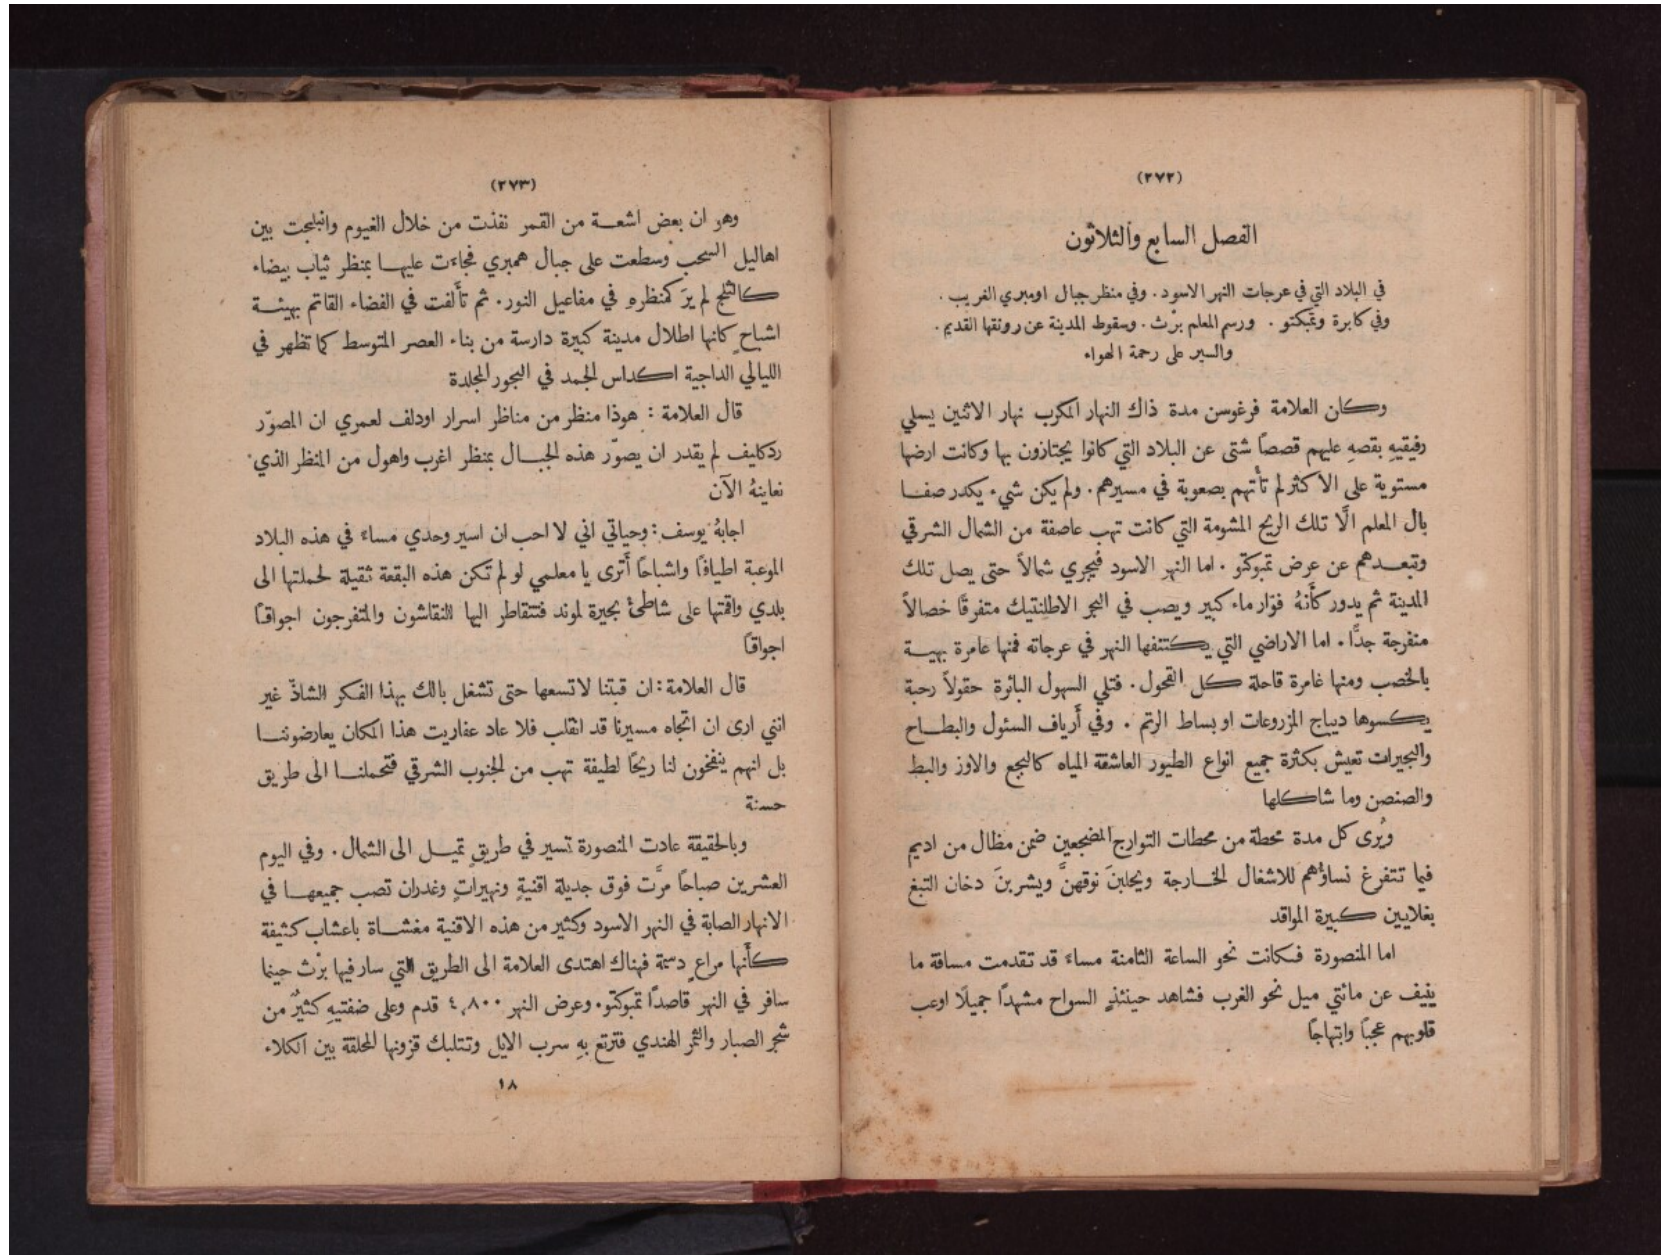 (٢٧٢)
الفصل السابع والثلاثون
في البلاد التي في عرجات النهر الاسود. وفي منظر جبال اومبري الغريب.
وفي كابرة وتمبكتو. ورسم المعلم برْث. وسقوط المدينة عن رونقها القديم.
والسير على رحمة الهواء
وكان العلامة فرغوسن مدة ذاك النهار المكرب نهار الاثنين يسلي
رفيقيهِ بقصهِ عليهم قصصاً شتى عن البلاد التي كانوا يجتازون بها وكانت ارضها
مستوية على الاكثر لم تأتهم بصعوبة في مسيرهم. ولم يكن شيء يكدر صفا
بال المعلم الَّا تلك الريح المشومة التي كانت تهب عاصفة من الشمال الشرقي
وتبعدهم عن عرض تمبوكتو. اما النهر الاسود فيجري شمالاً حتى يصل تلك
المدينة ثم يدور كأَنهُ فوّار ماء كبير ويصب في البحر الاطلنتيك متفرقًا خصالاً
منفرجة جدًّا. اما الاراضي التي يكتنفها النهر في عرجاته فمنها عامرة بهية
بالخصب ومنها غامرة قاحلة كل القحول. فتلي السهول البائرة حقولاً رحبة
يكسوها ديباج المزروعات او بساط الرتم. وفي أَرياف السئول والبطاح
والبحيرات تعيش بكثرة جميع انواع الطيور العاشقة المياه كالبجع والاوز والبط
والصنصن وما شاكلها
ويُرى كل مدة محطة من محطات التوارج المضجعين ضمن مظال من اديم
فيما تتفرغ نساؤُهم للاشغال الخارجة ويحلبنَ نوقهنَّ ويشربنَ دخان التبغ
بغلايين كبيرة المواقد
اما المنصورة فكانت نحو الساعة الثامنة مساءً قد تقدمت مسافة ما
ينيف عن مائتي ميل نحو الغرب فشاهد حينئذٍ السواح مشهدًا جميلًا اوعب
قلوبهم عجبًا وابتهاجًا
(٢٧٣)
وهو ان بعض اشعة من القمر نفذت من خلال الغيوم وانبلجت بين
اهاليل السحب وسطعت على جبال همبري فجاءت عليها بمنظر ثياب بيضاء
كالثلج لم يرَ كمنظرهِ في مفاعيل النور. ثم تأَلفت في الفضاء القاتم بهيئة
اشباحٍ كانها اطلال مدينة كبيرة دارسة من بناء العصر المتوسط كما تظهر في
الليالي الداجية اكداس الجمد في البحور المجلدة
قال العلامة: هوذا منظر من مناظر اسرار اودلف لعمري ان المصوّر
ردكليف لم يقدر ان يصوّر هذه الجبال بمنظر اغرب واهول من المنظر الذي
نعاينهُ الآن
اجابهُ يوسف: وحياتي اني لا احب ان اسير وحدي مساءً في هذه البلاد
الموعبة اطيافًا واشباحًا أَترى يا معلمي لو لم تكن هذه البقعة ثقيلة لحملتها الى
بلدي واقمتها على شاطئ بحيرة لموند فتتقاطر اليها النقاشون والمتفرجون اجواقًا
اجواقًا
قال العلامة: ان قبتنا لا تسعها حتى تشغل بالك بهذا الفكر الشاذّ غير
انني ارى ان اتجاه مسيرنا قد انقلب فلا عاد عفاريت هذا المكان يعارضوننا
بل انهم ينفخون لنا ريحًا لطيفة تهب من الجنوب الشرقي فتحملنا الى طريق
حسنة
وبالحقيقة عادت المنصورة تسير في طريقٍ تميل الى الشمال. وفي اليوم
العشرين صباحًا مرَّت فوق جديلة اقنيةٍ ونهيراتٍ وغدران تصب جميعها في
الانهار الصابة في النهر الاسود وكثير من هذه الاقنية مغشاة باعشاب كثيفة
كأَنها مراعٍ دسمة فهناك اهتدى العلامة الى الطريق التي سار فيها برْث حينما
سافر في النهر قاصدًا تمبوكتو. وعرض النهر ٤,٨٠٠ قدم وعلى ضفتيهِ كثيرٌ من
شجر الصبار والتمر الهندي فترتع بهِ سرب الايل وتتلبك قرونها المحلقة بين الكلاء
١٨